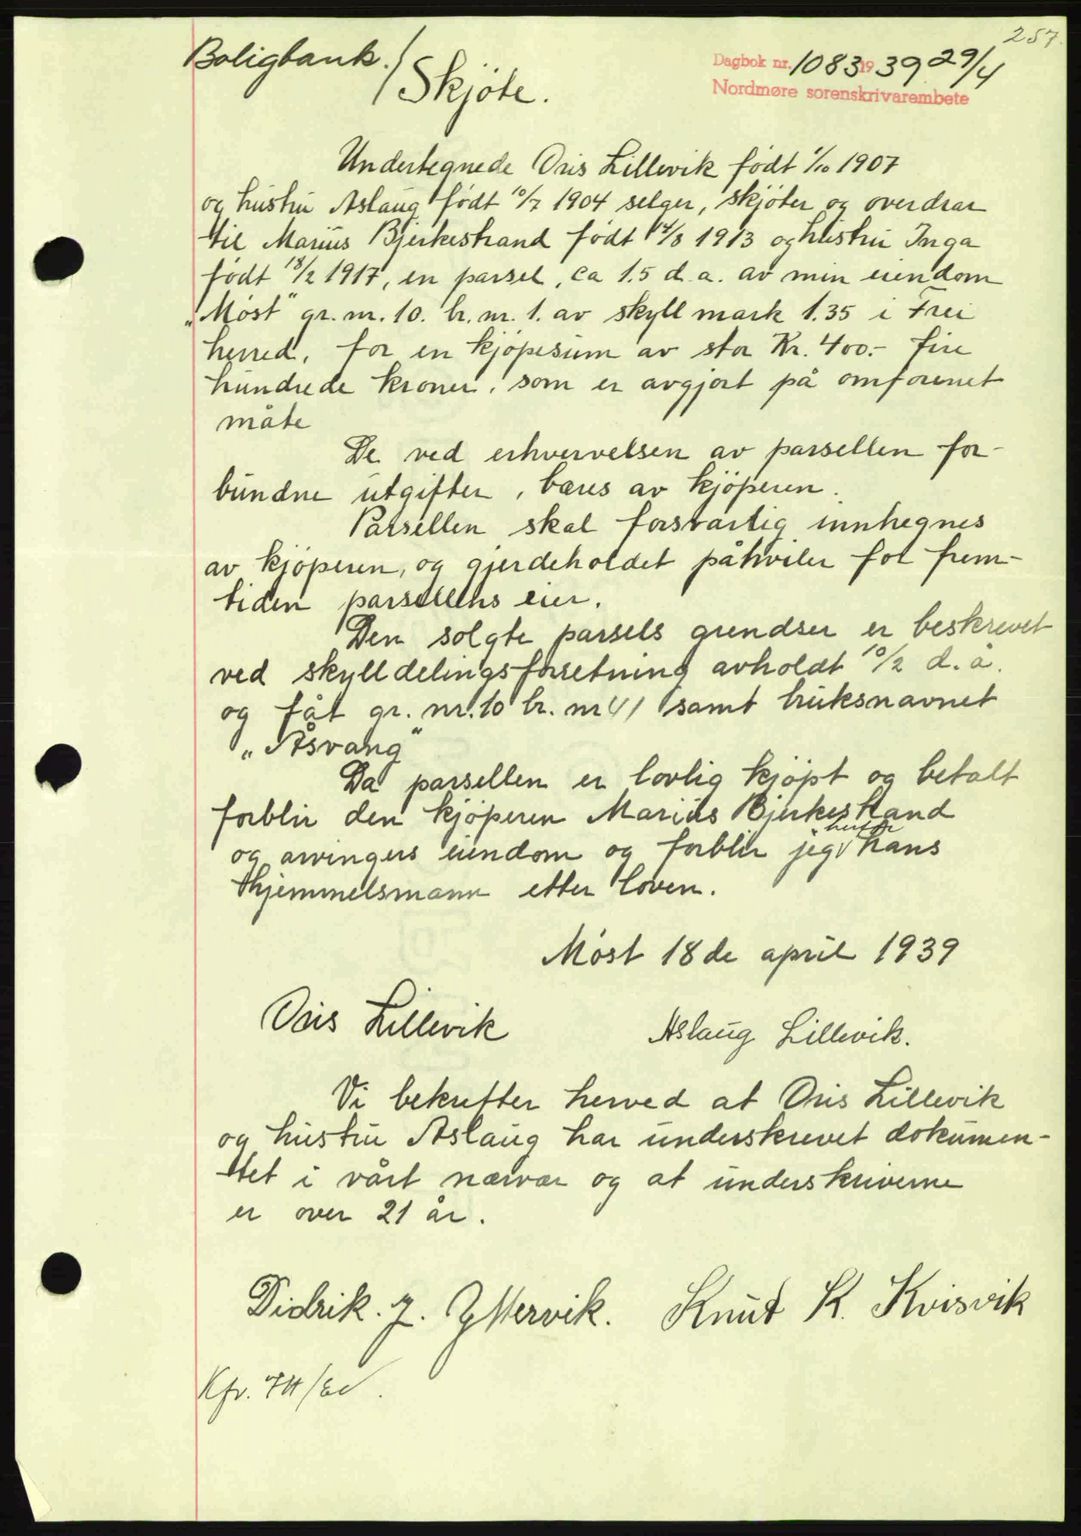 257.
Boligbank./
Skjöte.
Dagbok nr. 1083 1939 29/4
Nordmøre sorenskrivarembete
Undertegnede Oris Lillevik født 1/10 1907
og hustru Aslaug født 10/7 1904 selger, skjøter og overdrar
til Marius Bjerkestrand født 14/3 1913 og hustru Inga
født 18/2 1917, en parsel, ca 1.5 d.a. av min eiendom
„Møst" gr. nr. 10. br. nr. 1. av skyllmark 1.35 i Frei
herred, for en kjöpesum av stor Kr. 400.- fire
hundrede kroner, som er avgjort på omforenet
måte
De ved erhvervelsen av parsellen for-
bundne utgifter, bæres av kjöperen.
Parsellen skal forsvarlig innhegnes
av kjöperen, og gjerdeholdet påhviler for frem-
tiden parsellens eier.
Den solgte parsels grendser er beskrevet
ved skylldelingsforretning avholdt 10/2 d.å.
og fåt gr. nr. 10 br. nr 41 samt bruksnavnet
„Åsvang"
Da parsellen er lovlig kjöpt og betalt
forblir den kjöperen Marius Bjerkestrand
og arvingers eiendom og forblir jeg herfor hans
hjemmelsmann etter loven.
Møst 18de april 1939
Oris Lillevik
Aslaug Lillevik.
Vi bekrefter herved at Oris Lillevik
og hustru Aslaug har underskrevet dokumen-
tet i vårt nærvær og at underskriverne
er over 21 år.
Didrik. J. Yttervik.
Knut K. Kvisvik
Kfr.